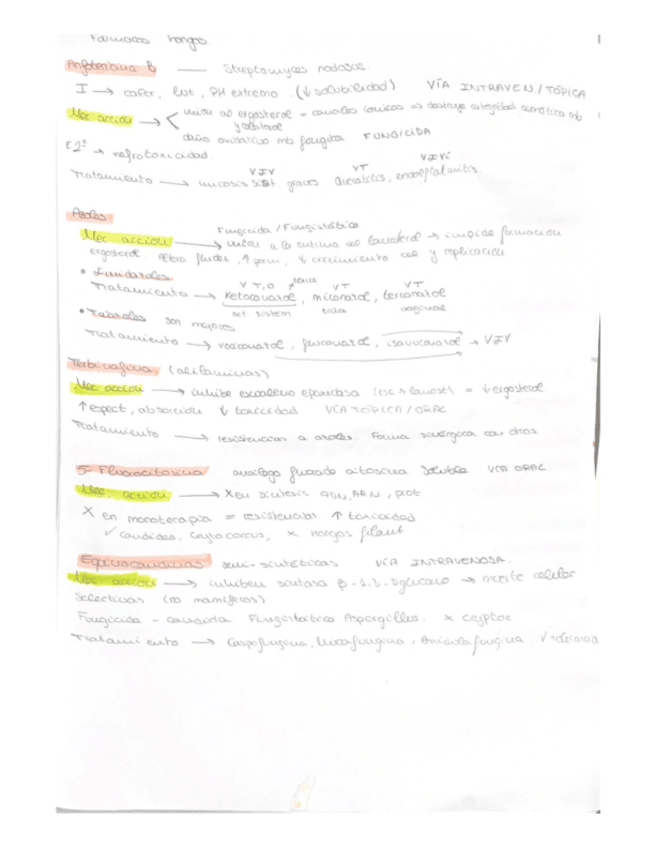 Farmacos hongos
Anfotericina B — Streptomyces nodosus.
I → calor, luz, PH extremo. (↓ solubilidad) VÍA INTRAVEN./TÓPICA
Mec accion → unión al ergosterol = canales ionicos => destruye integridad osmotica mb
y colesterol
daño oxidativo mb fungica FUNGICIDA
E2º → nefrotoxicidad.
VIV VT VIVi
Tratamiento → micosis sist graves queratitis, endoftalmitis
Azoles
Fungicida / Fungistático
Mec accion → unión a la enzima del lanosterol → impide formacion
ergosterol. Altera fluidez, ↑ perm, ↓ crecimiento cel y replicación
• Imidazoles
V T,O toxico VT VT
Tratamiento → Ketoconazol, miconazol, terconazol
act. sistem vaginal
• Triazoles son mejores
Tratamiento → voriconazol, fluconazol, isavuconazol → VIV
Terbinafina (alilaminas)
Mec accion → inhibe escualeno epoxidasa (esc → lanost) = ↓ ergosterol
↑ espect, absorcion ↓ toxicidad VÍA TÓPICA / ORAL
Tratamiento → resistencias a azoles. Forma sinérgica con otros
5-Fluorocitosina analogo fluorado citosina soluble VÍA ORAL
Mec. acción → X en sintesis ADN, ARN, prot
X en monoterapia = resistencias ↑ toxicidad
✓ candidas, Cryptococcus, X hongos filament
Equinocandinas semi-sintéticas VÍA INTRAVENOSA.
Mec accion → inhiben sintasa β-1.3-D glucano → muerte celular
Selectivas (no mamiferos)
Fungicida - candida Fungistático Aspergillus. X cryptoc
Tratamiento → Caspofungina, Micafungina, Anidulafungina ✓ tolerancia